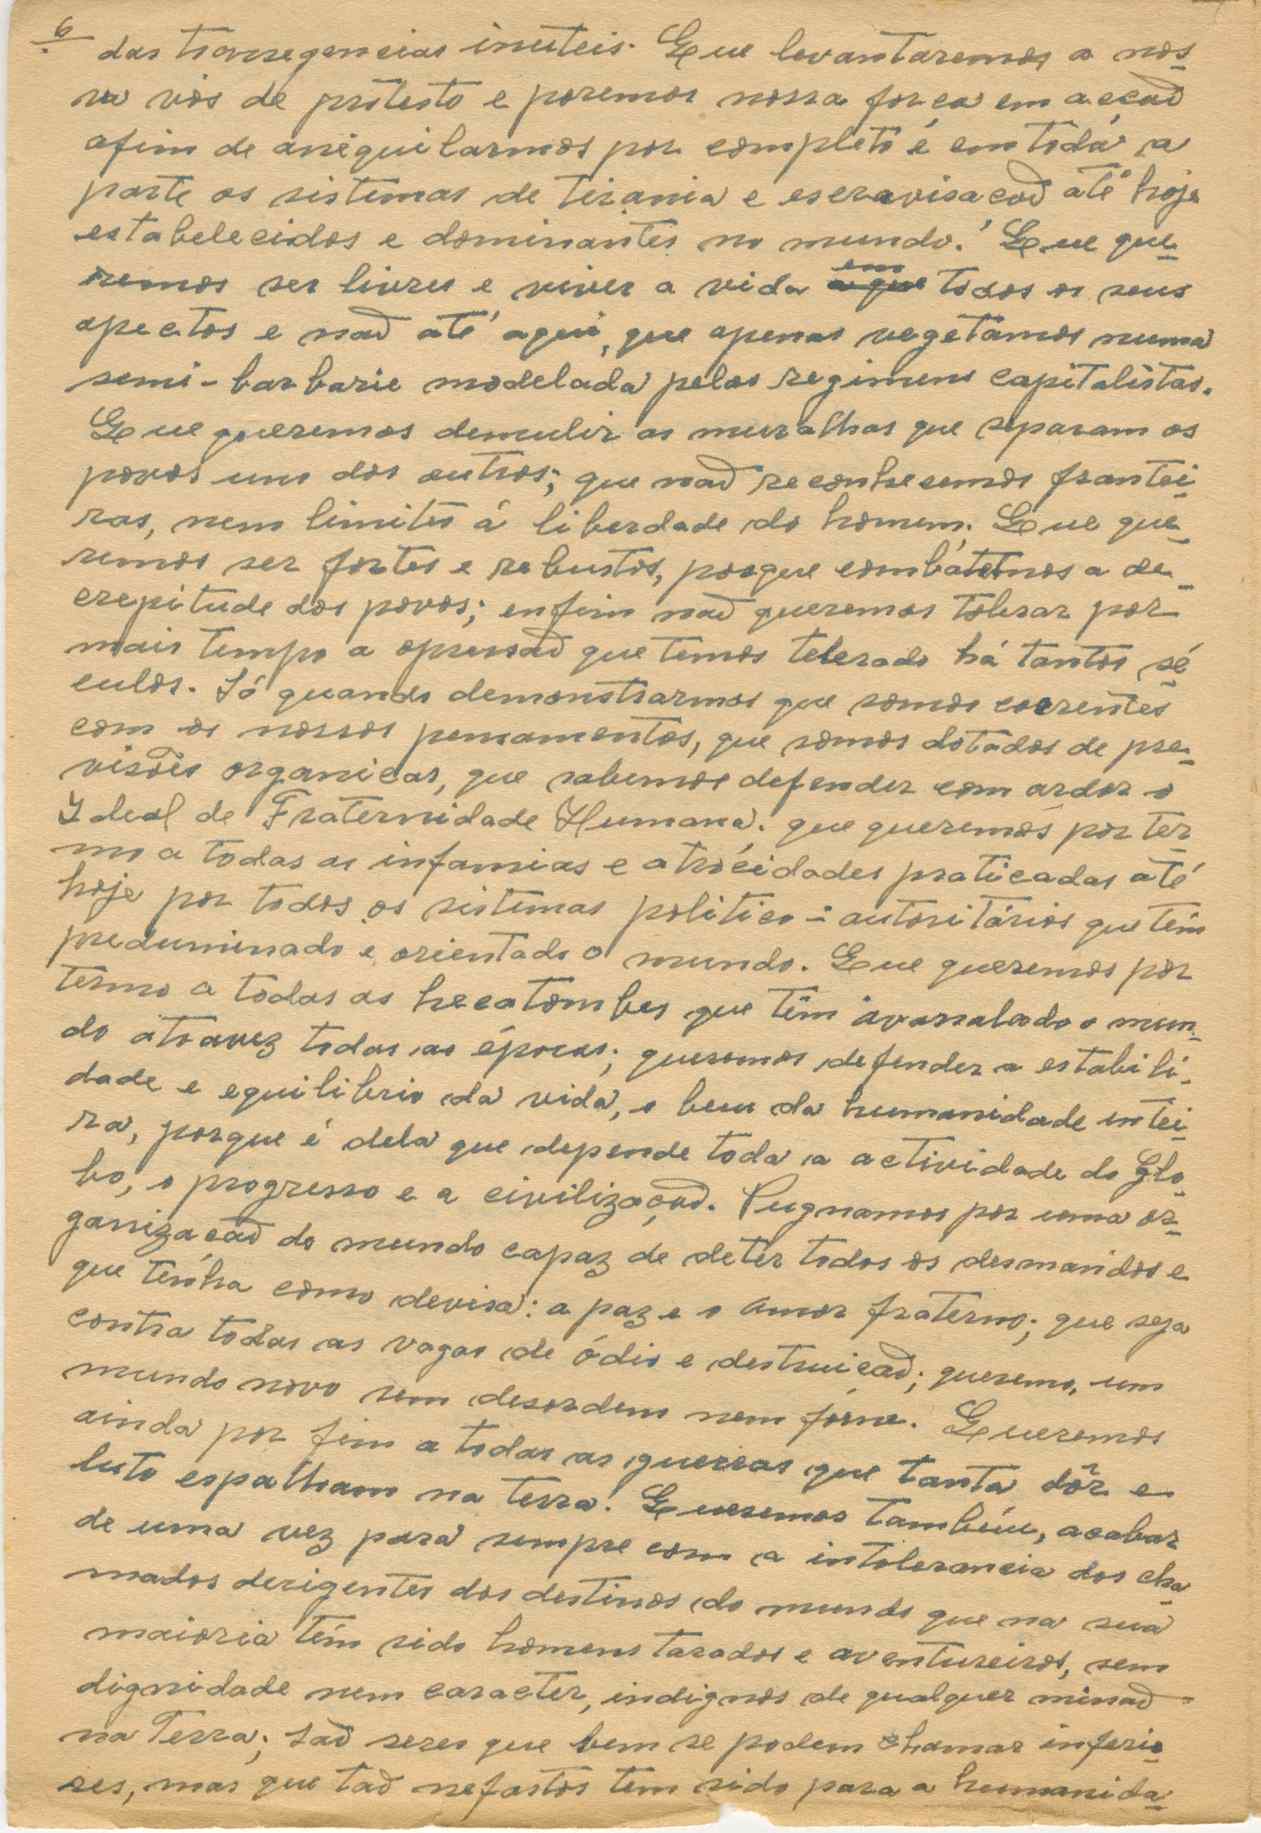 6
das transegencias inuteis. Que levantaremos a nos-
sa vós de prótesto e poremos nossa força em acçaõ
afim de aniquilarmos por completo e em toda a
parte os sistemas de tirania e escravisaçaõ até hoje
estabelecidos e dominantes no mundo. Que que-
remos ser livres e viver a vida em todos os seus
apectos e naõ até aqui, que apenas vegetâmos numa
semi-barbarie modelada pelos regimens capitalistas.
Que queremos demulir as muralhas que separam os
povos uns dos outros; que naõ reconhecemos frantei-
ras, nem limites á liberdade do homem. Que que-
remos ser fortes e robustos, porque combátemos a de-
crepitude dos povos; enfim naõ queremos tolerar por
mais tempo a opressaõ que temos tolerado há tantos sé-
culos. Só quando demonstrarmos que somos coerentes
com os nossos pensamentos, que somos dotados de pre-
visões organicas, que sabemos defender com ardor o
Ideal de Fraternidade Humana. que queremos por ter
mo a todas as infamias e atrócidades praticadas até
hoje por todos os sistemas politico-autoritários que têm
preduminado e orientado o mundo. Que queremos por
termo a todas as hecatombes que têm avassalado o mun-
do atravez todas as épocas; queremos defender a estabili-
dade e equilibrio da vida, o bem da humanidade intei-
ra, porque é dela que depende toda a actividade do Glo-
bo, o progresso e a civilizaçaõ. Pugnamos por uma or-
ganizaçaõ do mundo capaz de deter todos os desmandos e
que tenha como devisa: a paz e o amor fraterno; que seja
contra todas as vagas de ódio e destruiçaõ; queremos um
mundo novo sem desordem nem fóme. Queremos
ainda por fim a todas as guerras que tanta dôr e
luto espalham na terra. Queremos também, acabar
de uma vez para sempre com a intolerancia dos cha-
mados derigentes dos destinos do mundo que na sua
maioria têm sido homens tarados e aventureiros, sem
dignidade nem caracter, indignos de qualquer misaõ
na Terra; saõ seres que bem se podem chamar inferio-
res, mas que taõ nefastos tem sido para a humanida-